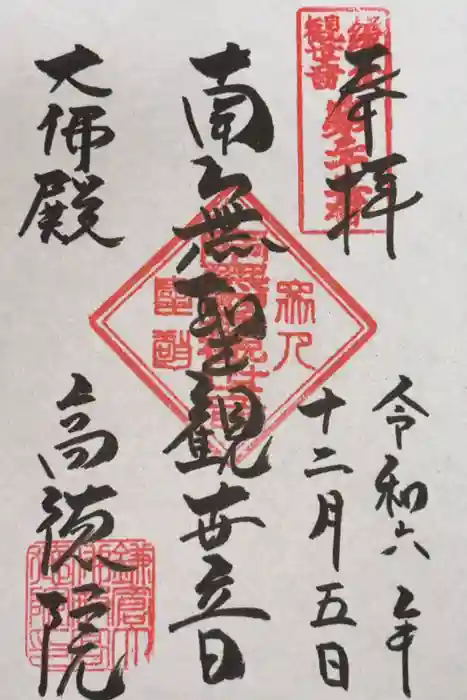 奉拝
観世音
令和六年
十二月五日
南無聖観世音
大佛殿
高徳院